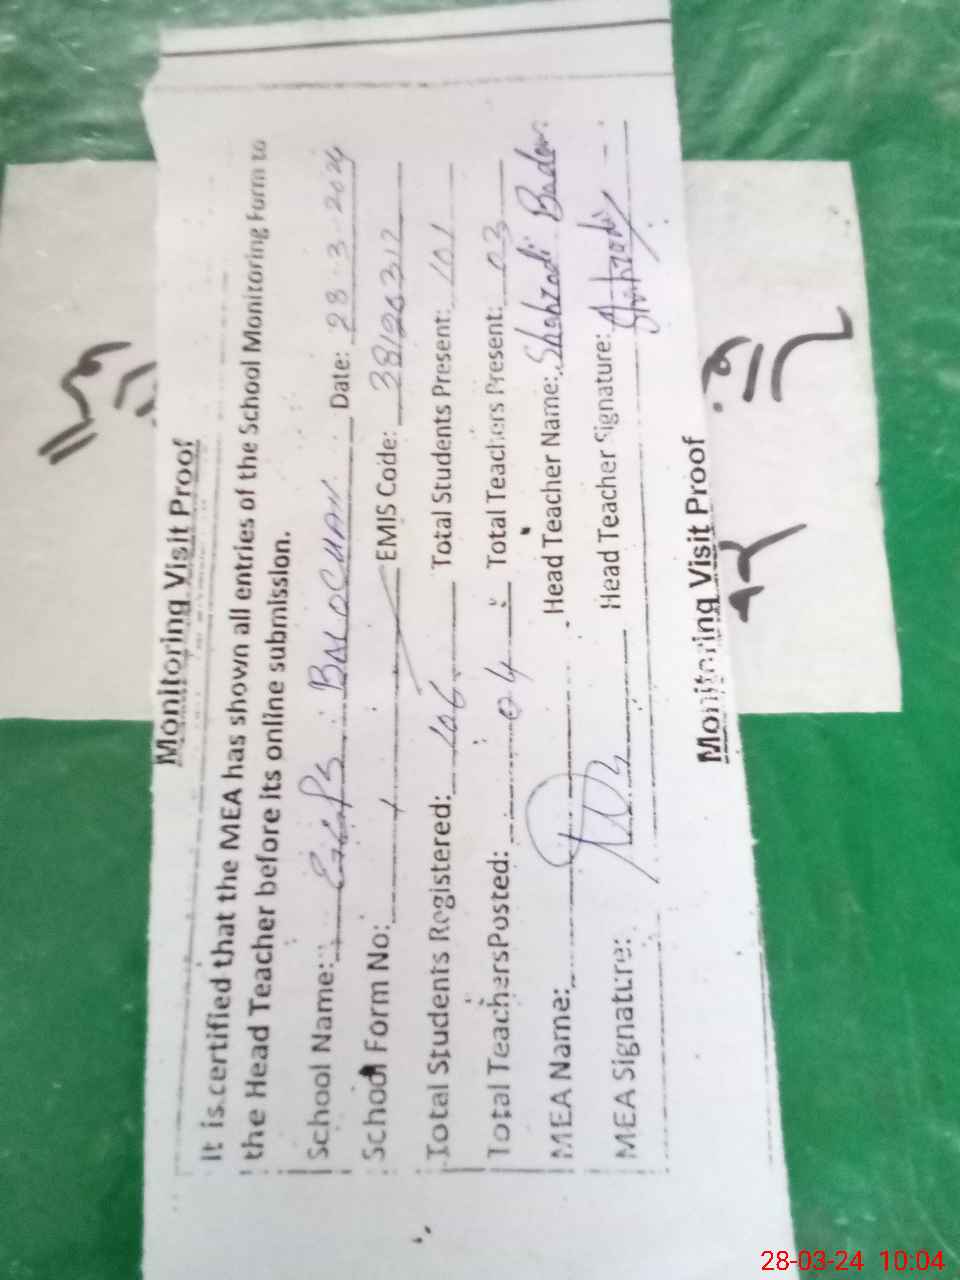 Monitoring Visit Proof
It is certified that the MEA has shown all entries of the School Monitoring Form to
the Head Teacher before its online submission.
School Name: GGPS BALOCHAN Date: 28-3-2024
School Form No: EMIS Code: 38120312
Total Students Registered: 106 Total Students Present: 101
Total Teachers Posted: 04 Total Teachers Present: 03
MEA Name: Head Teacher Name: Shahzadi
MEA Signature: Head Teacher Signature: Shahzadi
Monitoring Visit Proof
28-03-24 10:04